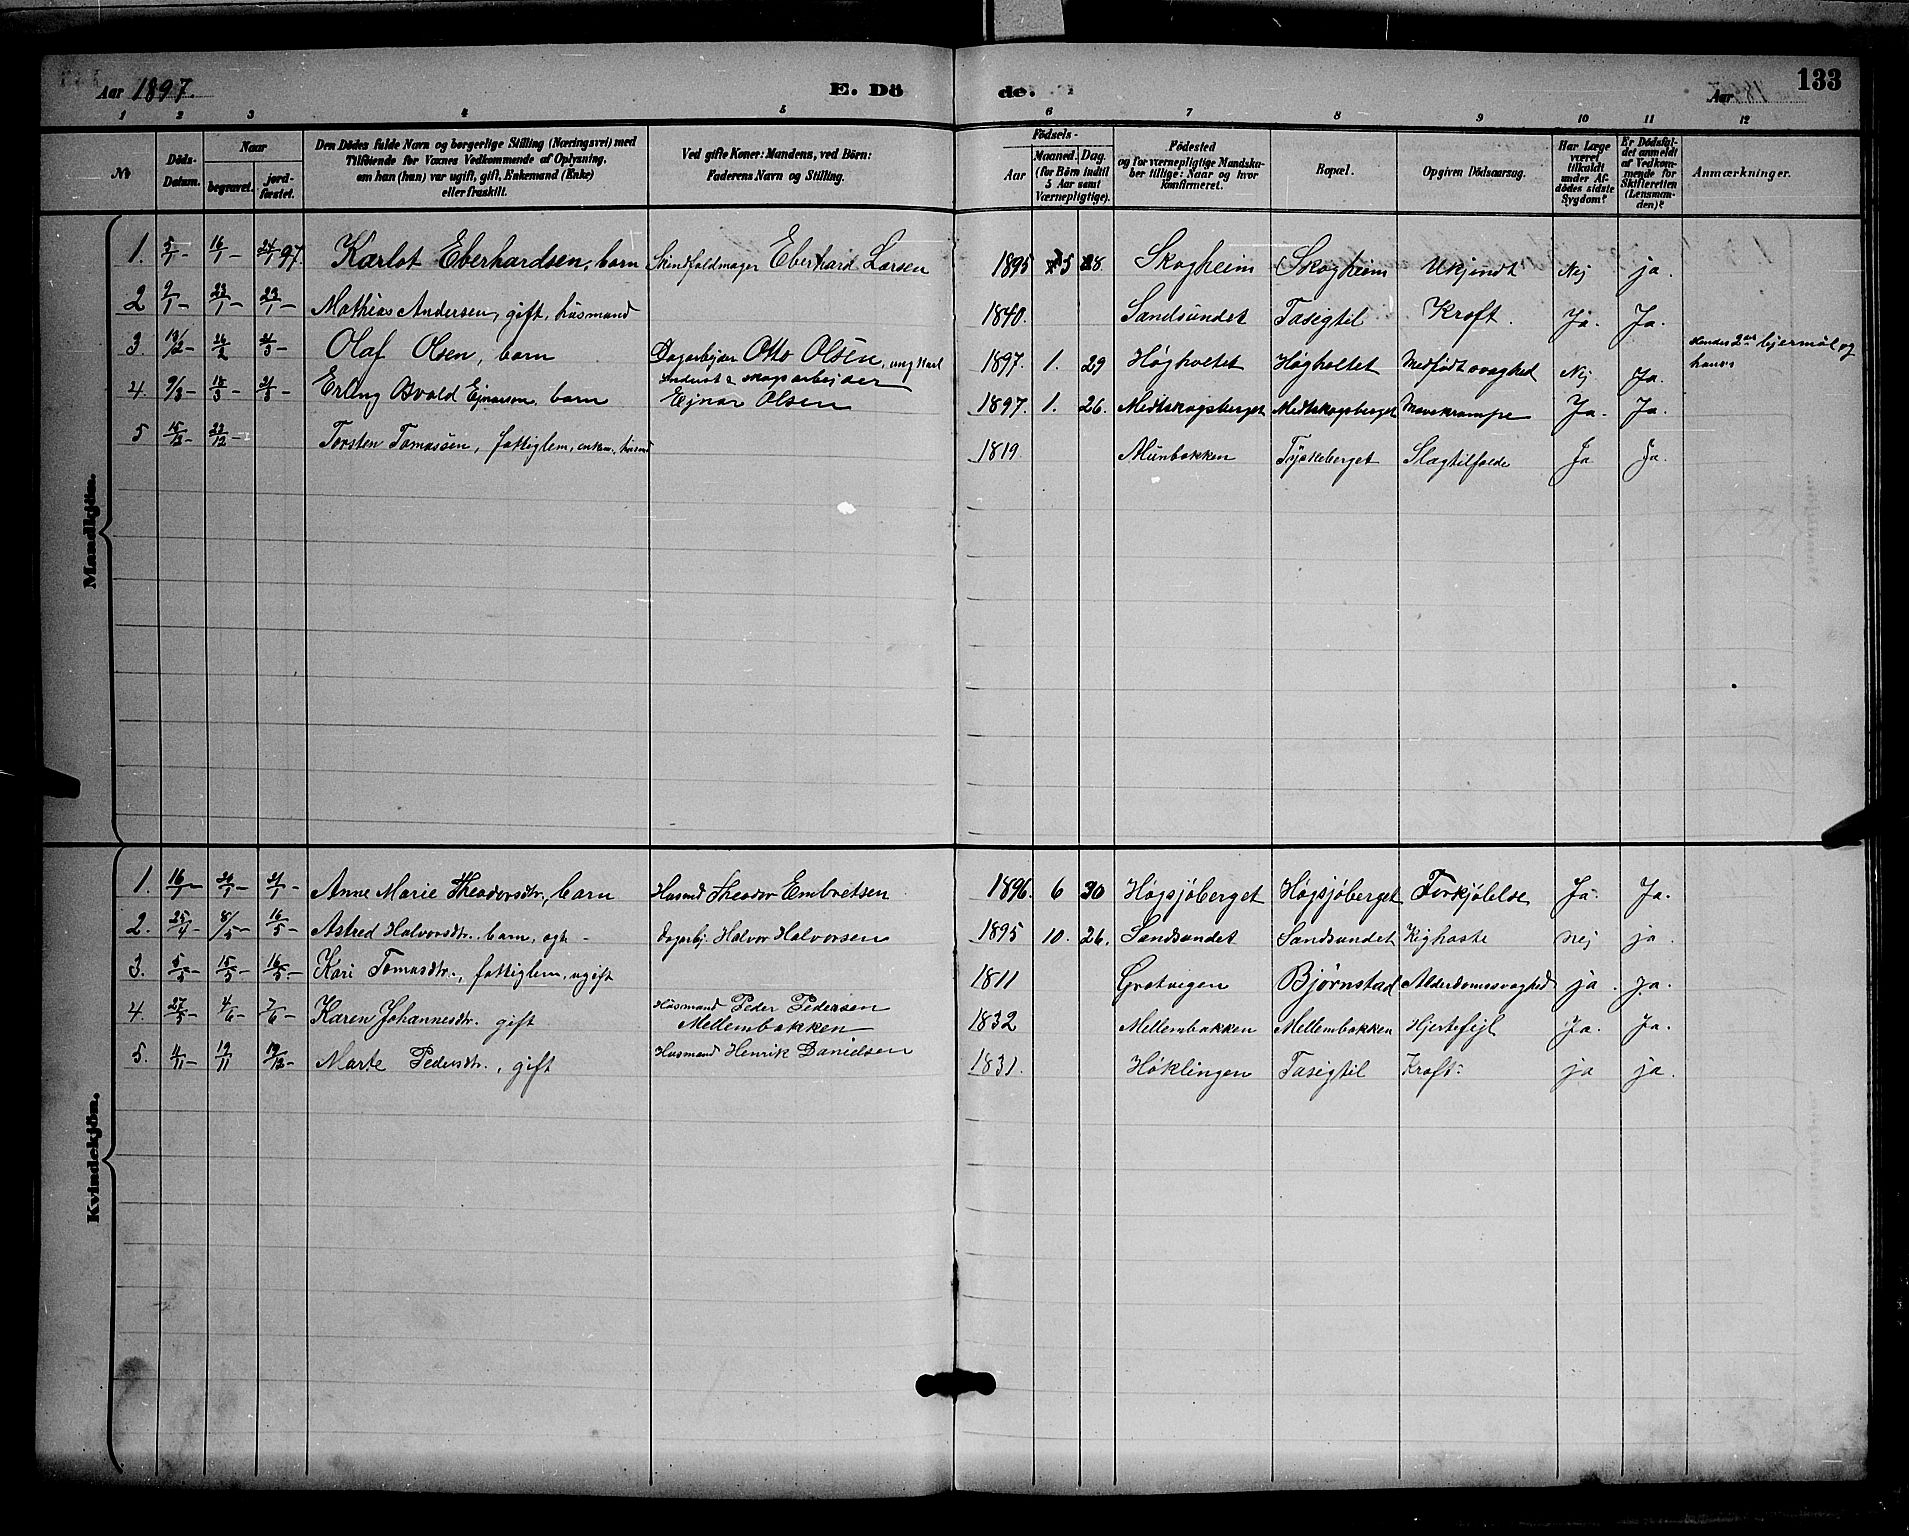 Aar 1897.
E. Dö de.
Aar
133
1 2 3 4 5 6 7 8 9 10 11 12
No
Döds-Datum.
Naar
begravet.
jord-fæstet.
Den Dödes fulde Navn og borgerlige Stilling (Næringsvei) med
Tilföiende for Voxnes Vedkommende af Oplysning,
om han (hun) var ugift, gift, Enkemand (Enke)
eller fraskilt.
Ved gifte Koner: Mandens, ved Börn:
Faderens Navn og Stilling.
Födsels-
Aar
Maaned. Dag.
(for Börn indtil
5 Aar samt
Værnepligtige).
Födested
og for værnepligtige Mandska-
ber tillige: Naar og hvor
konfirmeret.
Bopæl.
Opgiven Dödsaarsag.
Har Læge
været
tilkaldt
under Af-
dödes sidste
Sygdom?
Er Dödsfal-
det anmeldt
af Vedkom-
mende for
Skifteretten
(Lensman-
den)?
Anmærkninger.
Mandkjön.
1. 5/1- 16/1- 24/1 97. Karlot Eberhardsen, barn Eberhard Larsen 1895 5 28. Skogheim Skogheim Ukjendt Nej ja.
2 9/1- 23/1- 23/1- Mathias Andersen, gift, husmand 1840. Sandsundet Tasegtil Kræft. Ja. Ja.
3. 13/2- 26/2 21/3- Olaf Olsen, barn Dagarbejder Otto Olsen, ungkarl 1897. 1. 29 Høgholtet Høgholtet Medfødt svaghed Nej Ja. hendes 2det lejermål og
hans
4. 9/3- 18/3- 21/3- Erling Osvald Ejnarsen, barn skogsarbejder
Ejnar Olsen 1897. 1. 26. Medtskogsberget Medtskogsberget Mavekrampe Ja. Ja.
5 15/12- 22/12- Torsten Tomassen, fattiglem, enkem., husmd 1819. Munbakken Tyskeberget Slagtilfælde Ja Ja.
Kvindekjön.
1. 16/1- 21/1- 21/1- Anne Marie Theodorsdtr., barn Husmd Theodor Embretsen 1896. 6 30 Høgsjøberget Høgsjøberget Forkjølelse Ja. Ja.
2. 25/4- 8/5- 16/5- Astred Halvorsdtr., barn, ægte - Dagarbj. Halvor Halvorsen 1895 10. 26. Sandsundet Sandsundet Kighoste nej ja.
3. 5/5- 15/5- 16/5- Kari Tomasdtr., fattiglem, ugift 1811 Grøtvigen Bjørnstad Alderdomssvaghed ja. ja.
4. 27/5- 4/6- 7/6- Karen Johannesdtr. gift Husmand Peder Pedersen
Mellembakken 1832 Mellembakken Mellembakken Hjertefejl Ja. Ja.
5. 4/11- 19/11 19/12- Marte Pedersdtr., gift Husmand Henrik Danielsen 1831. Høklingen Tasegtil Kræft. ja ja.